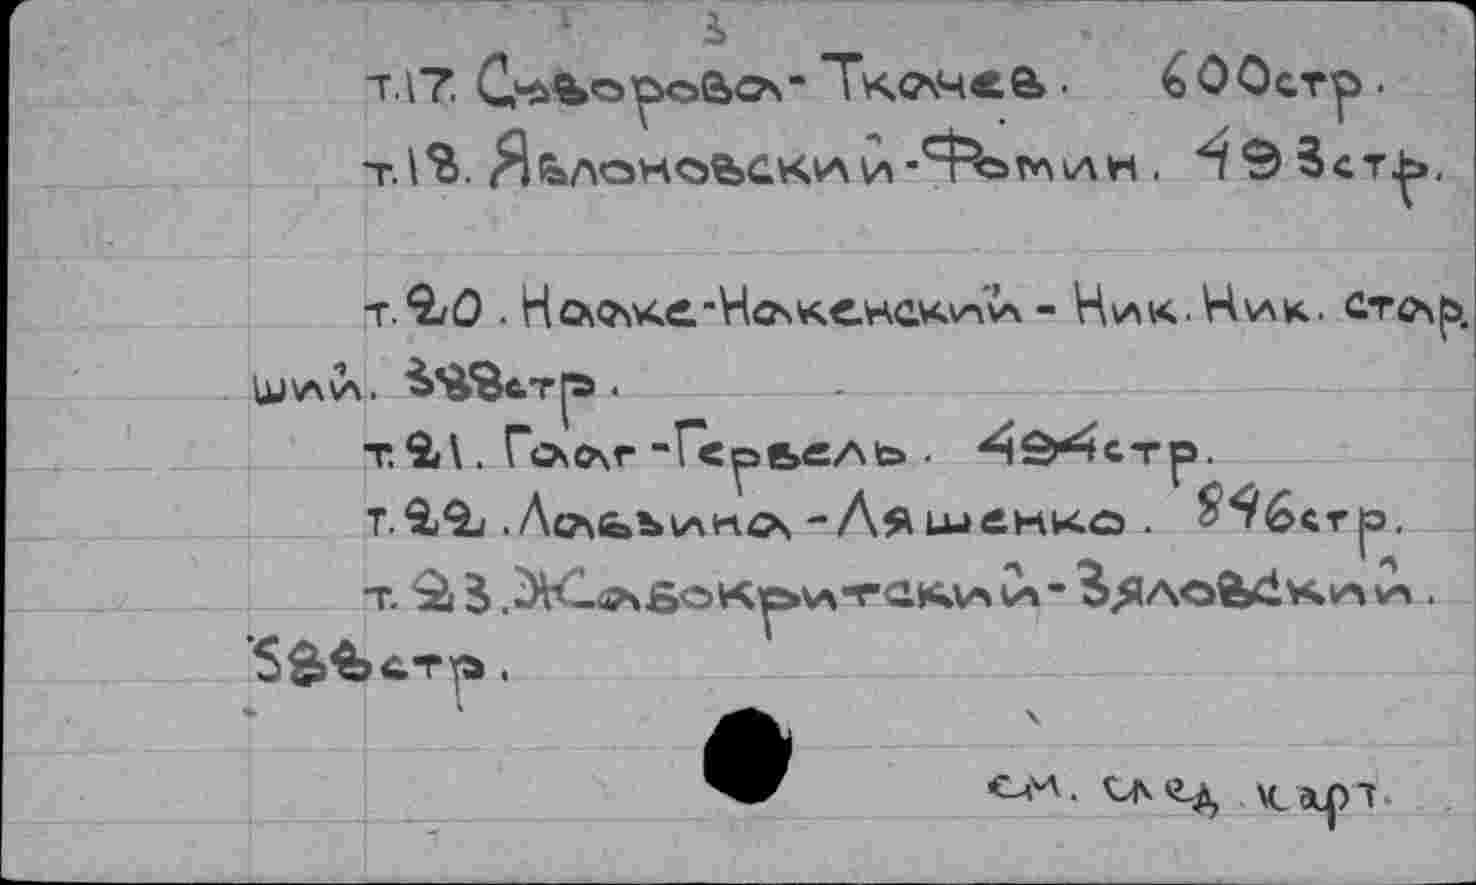 т.17. Суворова-Ткачев. 600стр.
т.18. Яблоновский-Фомин. 493стр.
т.20. Нааке-Накенский - Ник.Ник. стар.
ший. 388стр.
т.21. Гааг-Гербель. 494стр.
т.22. Лабзина-Ляшенко. 846стр.
т.23. Жабокритский-Зяловский.
588стр.
см. след карт.